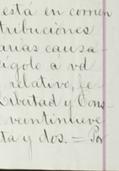 está en comen
tribuciones
arias causa
igole á vd
relativo, fe
Libertad y Cons
veintinueve
ta y dos. = Por